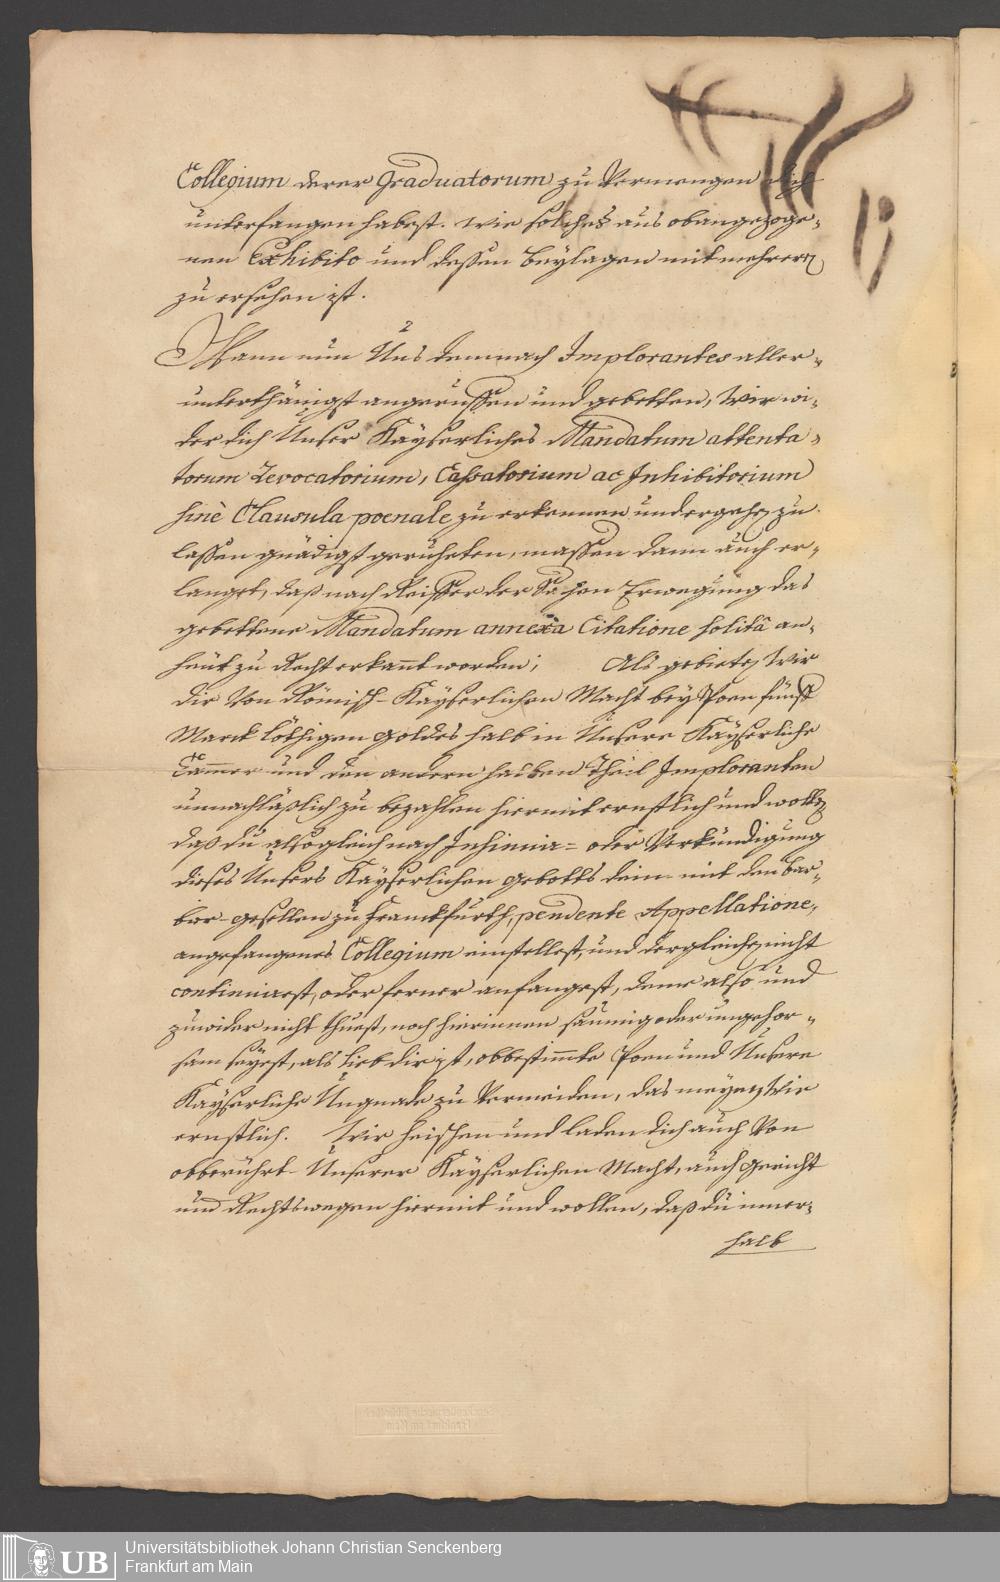 Collegium derer Graduatorum zu Vermengen dich
unterfangen habest. wie solches aus obangezoge-
nen Exhibito und deßen Beylagen mit mehrern
zu ersehen ist.
Wann nun Uns demnach Implorantes aller-
unterthänigst angeruffen und gebetten, Wir wi-
der dich Unser Kayserliches Mandatum attenta-
torum revocatorium, Cassatorium ac Inhibitorium
sinè Clausula poenale zu erkennen und ergehen zu
laßen gnädigst geruheten, maßen dann auch er-
langet, daß nach Reiffer der Sachen Erwegung das
gebettene Mandatum annexâ Citatione solitâ an-
heut zu Recht erkannt worden; Als gebieten Wir
dir Von Römisch-Kayserlichen Macht bey Poen fünff
Marck löthigen Goldes halb in Unsere Kayserliche
Cammer und den andern halben Theil Imploranten
unnachläßlich zu bezahlen hiermit ernstlich und wollen
daß du alsogleich nach Insinuir- oder Verkündigung
dieses Unsers Kayserlichen Gebotts dein mit den Bar-
bier-gesellen zu Franckfurth, pendente Appellatione,
angefangenes Collegium einstellest, und dergleichen nicht
continuirest, oder ferner anfangest, deme also und
zuwider nicht thuest, noch hierinnen säumig oder ungehor-
sam seyest, als lieb dir ist, obbestimmte Poen und Unsere
Kayserliche Ungnade zu Vermeiden, das meynen Wir
ernstlich. Wir heischen und laden dich auch Von
obberührt-Unserer Kayserlichen Macht, auch Gericht
und Rechtswegen hiermit und wollen, daß du inner-
halb
UB
Universitätsbibliothek Johann Christian Senckenberg
Frankfurt am Main